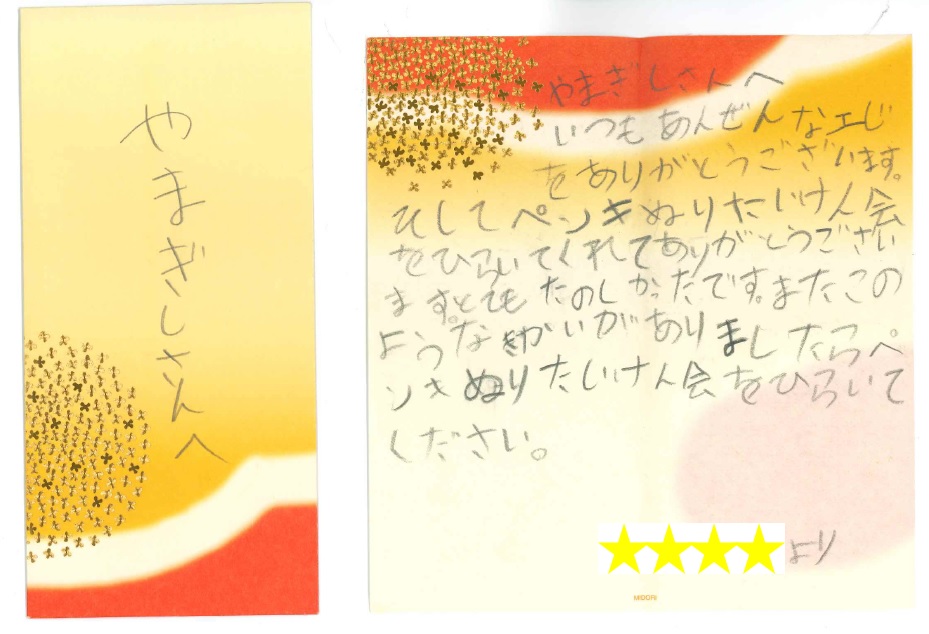 やまぎしさんへ
やまぎしさんへ
いつもあんぜんなエじ
をありがとうございます。
そしてペンキぬりたいけん会
をひらいてくれてありがとうござい
ます。とても たのしかったです。またこの
ようなきかいがありましたらペ
ンキぬりたいけん会をひらいて
ください。
より
MIDORI